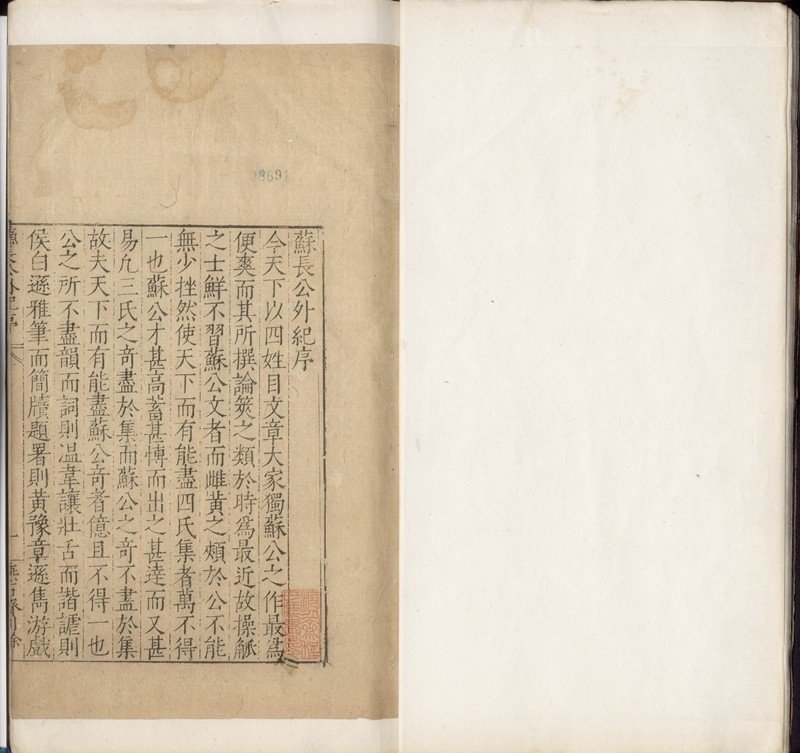 28691
蘇長公外紀序
今天下以四姓目文章大家獨蘇公之作最爲
便爽而其所撰論筴之類於時爲最近故操觚
之士鮮不習蘇公文者而雌黃之頰於公不能
無少挫然使天下而有能盡四氏集者萬不得
一也蘇公才甚高蓄甚博而出之甚達而又甚
易凡三氏之奇盡於集而蘇公之奇不盡於集
故夫天下而有能盡蘇公奇者億且不得一也
公之所不盡韻而詞則温韋讓壯舌而諧謔則
侯白遜雅筆而簡牘題署則黃豫章遜雋游戲